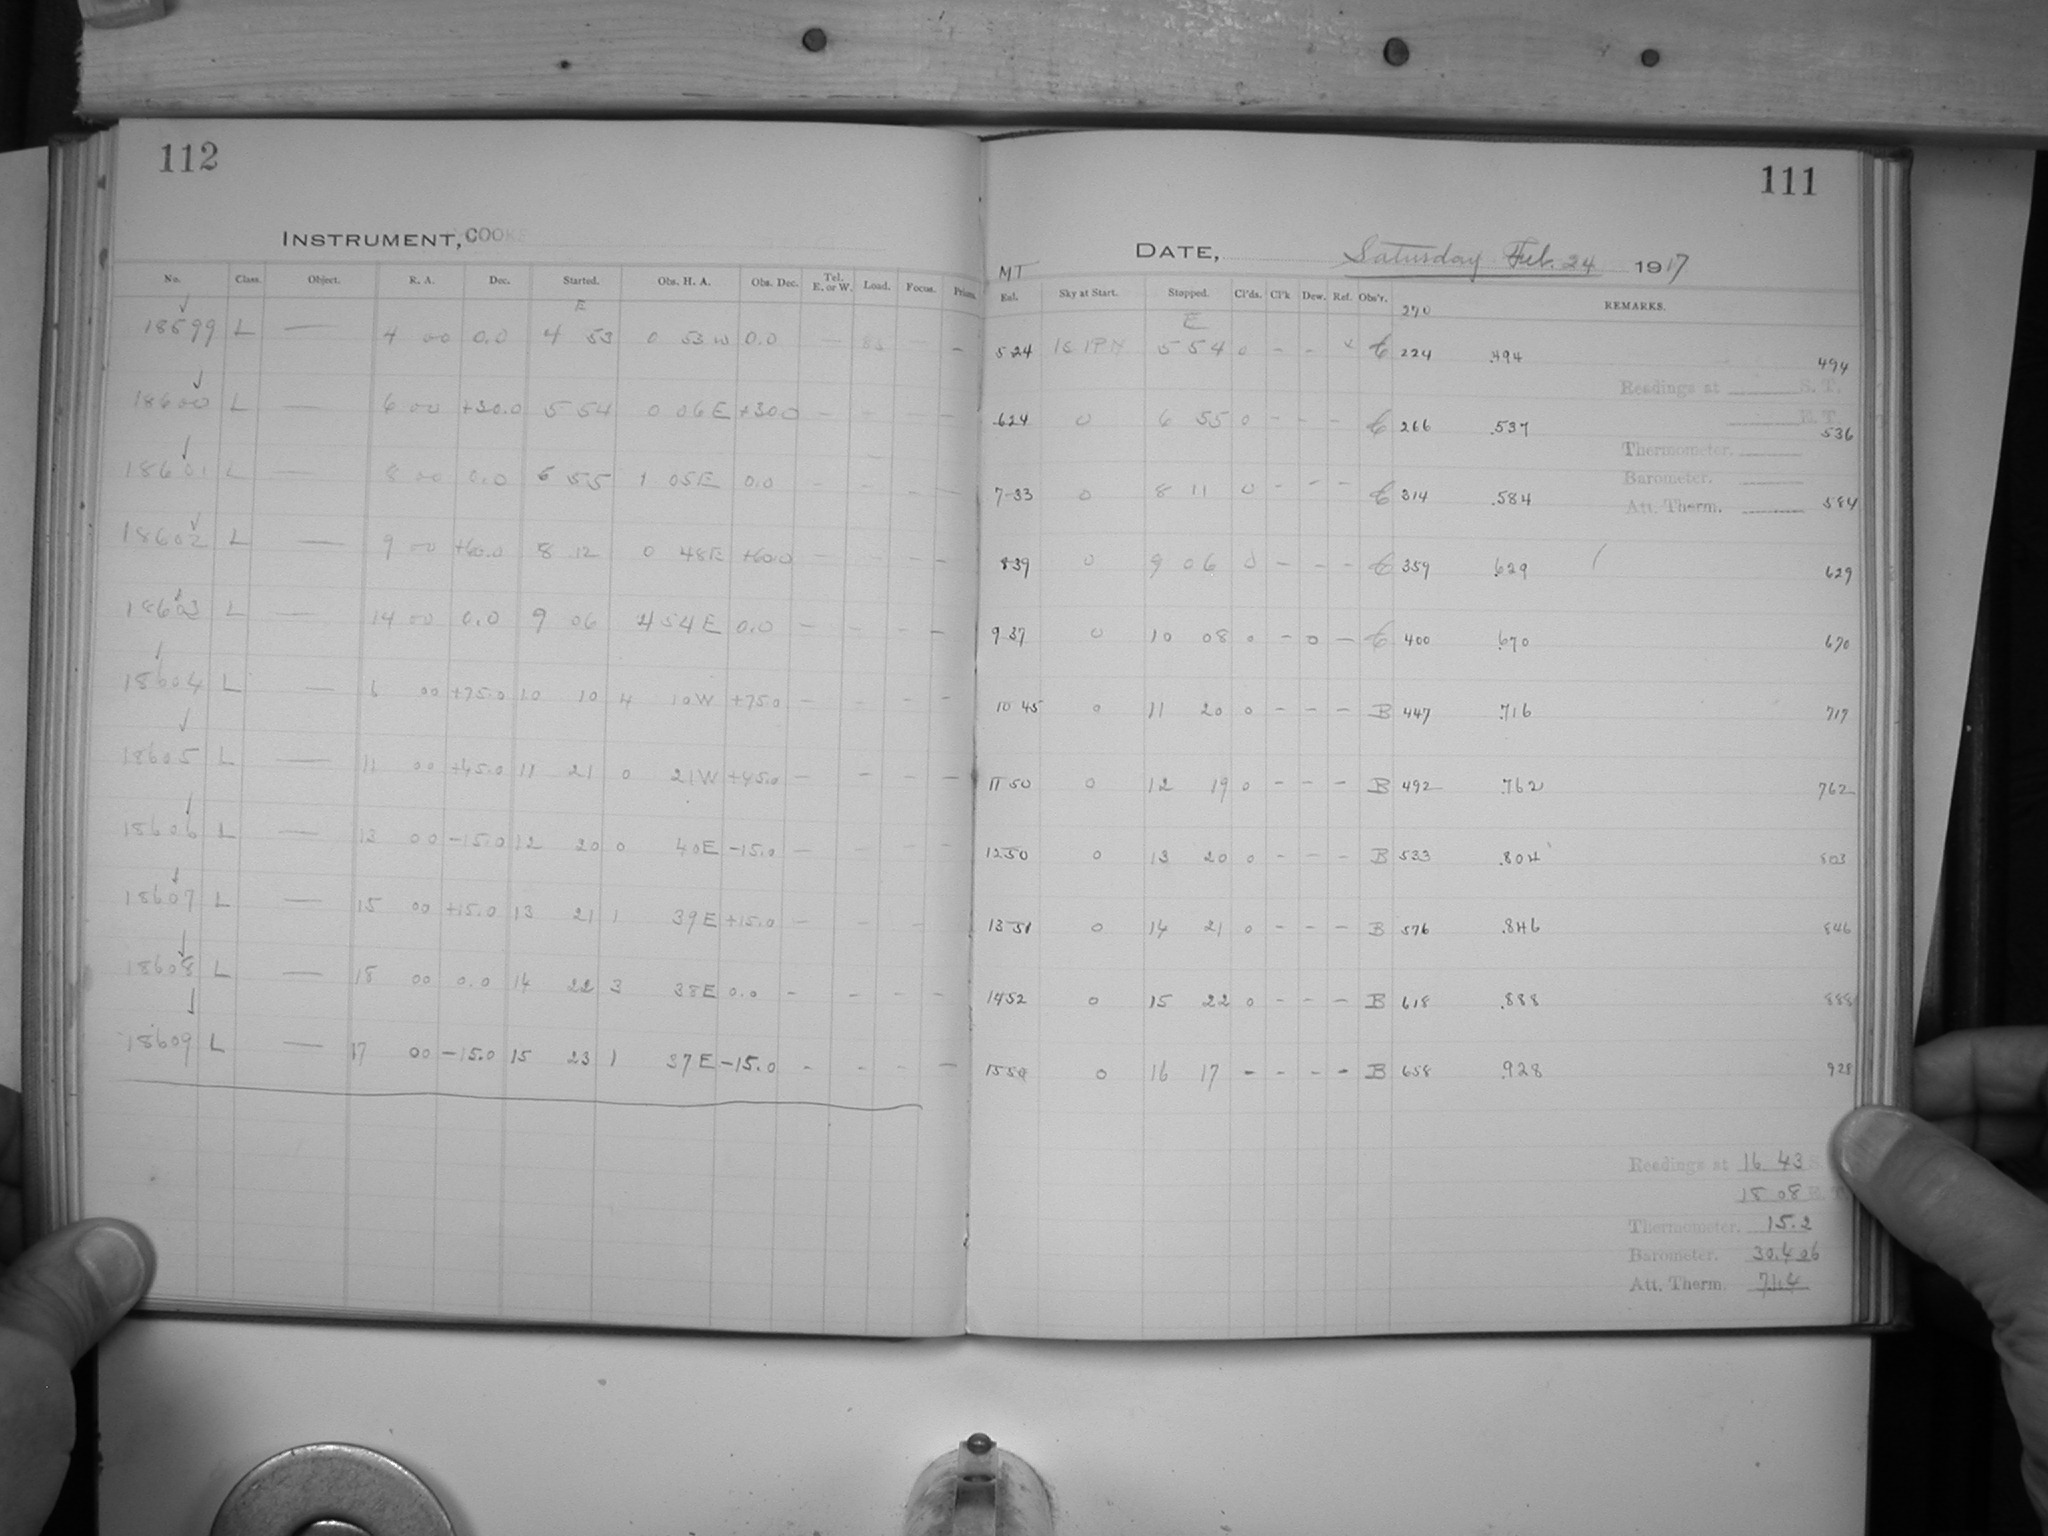 112
INSTRUMENT, COOKE
No. Class. Object. R. A. Dec. Started. Obs. H. A. Obs. Dec. Tel. E. or W. Load. Focus. Prisms.
E
18599 L — 4 00 0.0 4 53 0 53 W 0.0 — — —
18600 L — 6 00 +30.0 5 54 0 06 E +30.0 — — — —
18601 L — 8 00 0.0 6 55 1 05 E 0.0 — — — —
18602 L — 9 00 +60.0 8 12 0 48 E +60.0 — — — —
18603 L — 14 00 0.0 9 06 4 54 E 0.0 — — — —
18604 L — 6 00 +75.0 10 10 4 10 W +75.0 — — — —
18605 L — 11 00 +45.0 11 21 0 21 W +45.0 — — — —
18606 L — 13 00 -15.0 12 20 0 40 E -15.0 — — — —
18607 L — 15 00 +15.0 13 21 1 39 E +15.0 — — —
18608 L — 18 00 0.0 14 22 3 38 E 0.0 — — — —
18609 L — 17 00 -15.0 15 23 1 37 E -15.0 — — — —
111
DATE, Saturday Feb. 24 1917
MT
Eol. Sky at Start. Stopped. Cl'ds. Cl'k Dew. Ref. Obs'r. REMARKS.
270
E
5 24 5 54 0 - - x C 224 .494 494
Readings at S. T.
E. T.
6 24 0 6 55 0 - - - C 266 .537 536
Thermometer.
Barometer.
7 33 0 8 11 0 - - - C 314 .584 584
Att. Therm.
8 39 0 9 06 0 - - - C 359 .629 629
9 37 0 10 08 0 - 0 - C 400 .670 670
10 45 0 11 20 0 - - - B 447 .716 717
11 50 0 12 19 0 - - - B 492 .762 762
12 50 0 13 20 0 - - - B 533 .804 803
13 51 0 14 21 0 - - - B 576 .846 846
14 52 0 15 22 0 - - - B 618 .888 888
15 50 0 16 17 - - - - B 658 .928 928
Readings at 16 43 S.
18 08 E. T.
Thermometer. 15.2
Barometer. 30.406
Att. Therm. 74.4